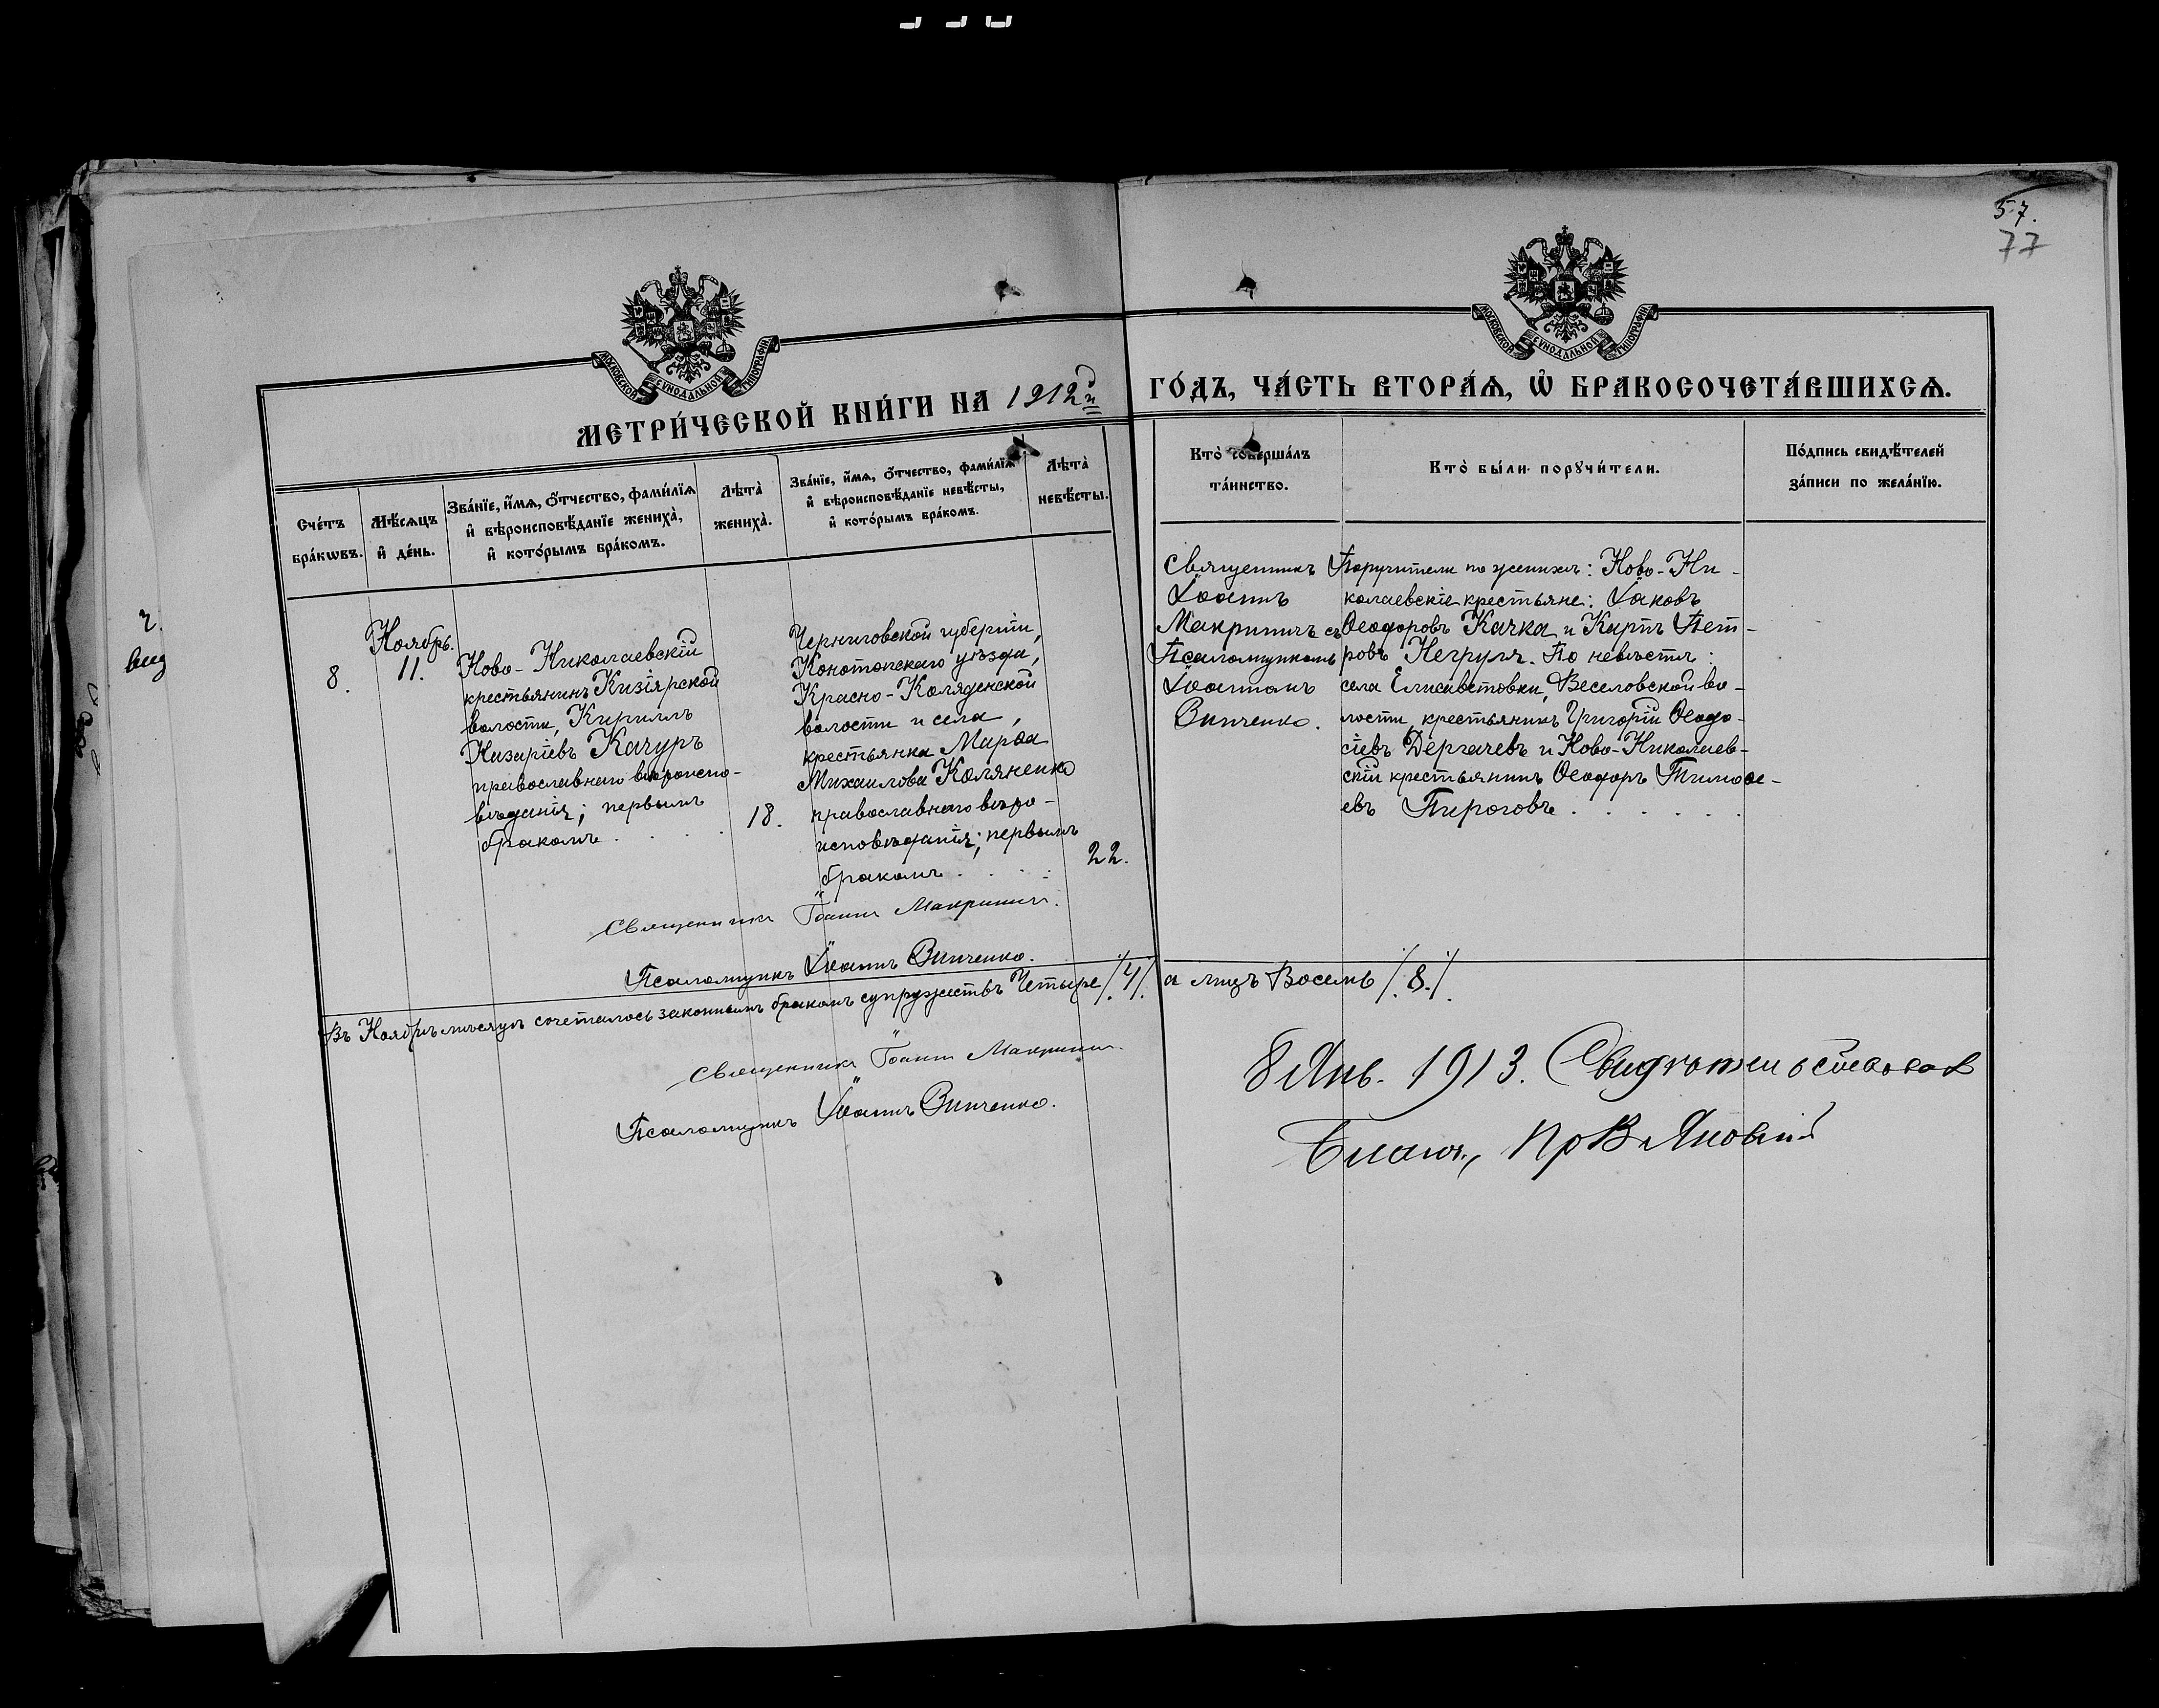 57.
77
МОСКОВСКОЙ СѴНОДАЛЬНОЙ ТИПОГРАФІИ
МОСКОВСКОЙ СѴНОДАЛЬНОЙ ТИПОГРАФІИ
МЕТРИ́ЧЕСКОЙ КНИ́ГИ НА 1912й
ГО́ДЪ, ЧА́СТЬ ВТОРА́Ѧ, Ѽ БРАКОСОЧЕТА́ВШИХСѦ.
Сче́тъ
бра́кѡвъ.
Мѣ́сѧцъ
и҆ де́нь.
Зва́нїе, и҆́мѧ, ѻ҆́тчество, фами́лїѧ
и҆ вѣроисповѣ́данїе жениха̀,
и҆ кото́рымъ бра́комъ.
Лѣта̀
жениха̀.
Зва́нїе, и҆́мѧ, ѻ҆́тчество, фами́лїѧ
и҆ вѣроисповѣ́данїе невѣ́сты,
и҆ кото́рымъ бра́комъ.
Лѣта̀
невѣ́сты.
Кто̀ соверша́лъ
та́инство.
Кто̀ бы́ли порꙋчи́тели.
По́дпись свидѣ́телей
за́писи по жела́нїю.
8.
Ноябрь.
11.
Ново-Николаевскій
крестьянинъ Кизіярской
волости, Кириллъ
Назаріевъ Качуръ
православнаго вѣроиспо-
вѣданія; первымъ
бракомъ . . . .
18.
Черниговской губерніи,
Конотопскаго уѣзда,
Красно-Коляденской
волости и села,
крестьянка Марѳа
Михаилова Коляненко
православнаго вѣро-
исповѣданія; первымъ
бракомъ . . . :
22.
Священникъ
Іоаннъ
Макрининъ съ
Псаломщикомъ
Іоанномъ
Винченко.
Поручители по женихѣ: Ново-Ни-
колаевскіе крестьяне: Іаковъ
Ѳеодоровъ Качка и Карпъ Пет-
ровъ Негруля. По невѣстѣ:
села Елисаветовки, Веселовской во-
лости, крестьянинъ Григорій Ѳеодо-
сіевъ Дергачевъ и Ново-Николаев-
скій крестьянинъ Ѳеодоръ Тимоѳе-
евъ Пироговъ . . . . . .
Священникъ Іоаннъ Макрининъ.
Псаломщикъ Іоаннъ Винченко.
Въ Ноябрѣ мѣсяцѣ сочеталось законнымъ бракомъ супружествъ Четыре /.4/. а лицъ Восемь /.8./.
Священникъ Іоаннъ Макрининъ.
Псаломщикъ Іоаннъ Винченко.
8 Янв. 1913. Свидѣтельствовалъ
Благоч., Пр В Яновскій